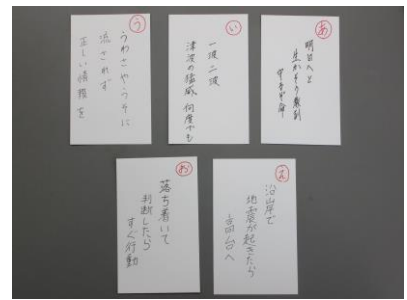 あ
明日へと
生かそう教訓
い
一波二波
津波の猛威 何度でも
う
うわさやうそに
流されず
正しい情報を
え
沿岸で
地震が起きたら
高台へ
お
落ち着いて
判断したら
すぐ行動